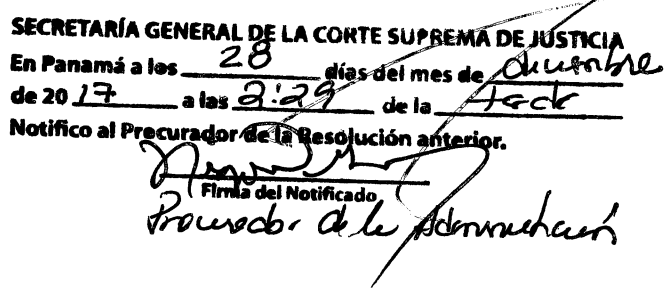 SECRETARÍA GENERAL DE LA CORTE SUPREMA DE JUSTICIA
En Panamá a los 28 días del mes de diciembre
de 2017 a las 2:29 de la tarde
Notifico al Procurador de la Resolución anterior.
Firma del Notificado
Procurador de la Administración